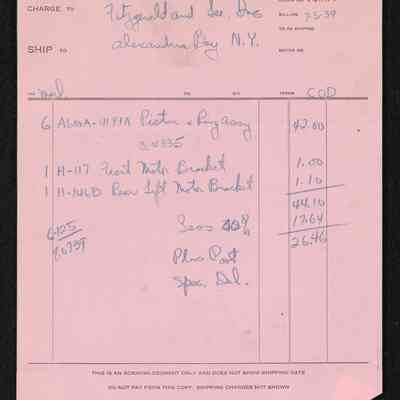 CHARGE TO Fitzgerald and Lee, Inc
BILLING 7-5-39
TO BE SHIPPED
SHIP TO Alexandria Bay N.Y.
VIA Mail TERMS COD
6 Piston & Ring assy 42.00
1 H-117 Front Motor Bracket 1.00
1 H-146D Rear Left Motor Bracket 1.10
44.10
Less 40% 17.64
26.46
Plus Post
Spec. Del.
THIS IS AN ACKNOWLEDGMENT ONLY AND DOES NOT SHOW SHIPPING DATE
DO NOT PAY FROM THIS COPY. SHIPPING CHARGES NOT SHOWN